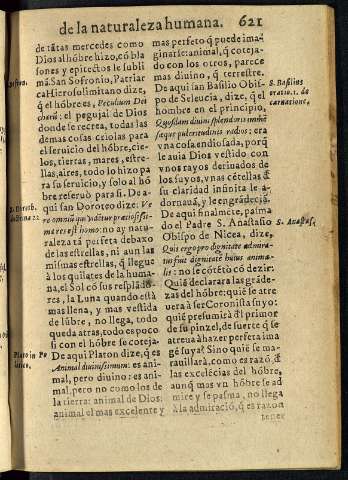 de la naturaleza humana. 621
de tãtas mercedes como
Dios al hõbre hizo, cõ bla
sones y epitectos le subli
mã. San Sofronio, Patriar
ca Hierosolimitano dize,
q̃ el hõbre es, Peculium Dei
el pegujal de Dios
donde se recrea, todas las
demas cosas criolas para
el servicio del hõbre, cie-
los, tierras, mares, estre-
llas, aires, todo lo hizo pa
ra su servicio, y solo al hõ
bre reservò para si. De a-
qui san Doroteo dize: Ve
re omniũ quæ vidẽtur præciosissi-
ma res est homo: no ay natu-
raleza tã perfeta debaxo
de las estrellas, ni aun las
mismas estrellas, q̃ llegue
à los quilates de la huma-
na, el Sol cõ sus resplãdo-
res, la Luna quando està
mas llena, y mas vestida
de lũbre, no llega, todo
queda atras, todo es poco
si con el hõbre se coteja.
De aqui Platon dize, q̃ es
Animal divinissimum: es ani-
mal, pero divino: es ani-
mal, pero no como los de
la tierra: animal de Dios:
animal el mas excelente y
S. Doroth.
Plato in Po
litico.
mas perfeto q̃ puede ima-
ginarse: animal, q̃ coteja-
do con los otros, parece
mas divino, q̃ terrestre.
De aqui san Basilio Obis-
po de Seleucia, dize, q̃ el
hombre en el principio,
Quosdam divini splendoris immis-
sæque pulcritudinis radios: era
vna cosa endiosada, porq̃
le auia Dios vestido con
vnos rayos derivados de
los suyos, vnas cẽtellas d̃
su claridad infinita le a-
dornauã, y le engrãdeciã.
De aqui finalmẽte, pasma
do el Padre S. Anastasio
Obispo de Nicea, dize,
Quis ergo pro dignitate admira-
tus fuit dignitatẽ huius anima-
lis: no se cõtẽtò cõ dezir:
Quiẽ declararà las grãde-
zas del hõbre: quiẽ se atre
uerà à ser Coronista suyo:
quiẽ presumirà d̃l primor
de su pinzel, de suerte q̃ se
atreua à hazer perfeta ima
gẽ suya? Sino quiẽ se ma-
rauillarà, como es razõ, d̃
las excelẽcias del hõbre,
aunq̃ mas vn hõbre se ad
mire y se pasma, no llega
à la admiraciõ, q̃ es razon
tener
S. Basilius
oratio. 1. de
S. Anastas.